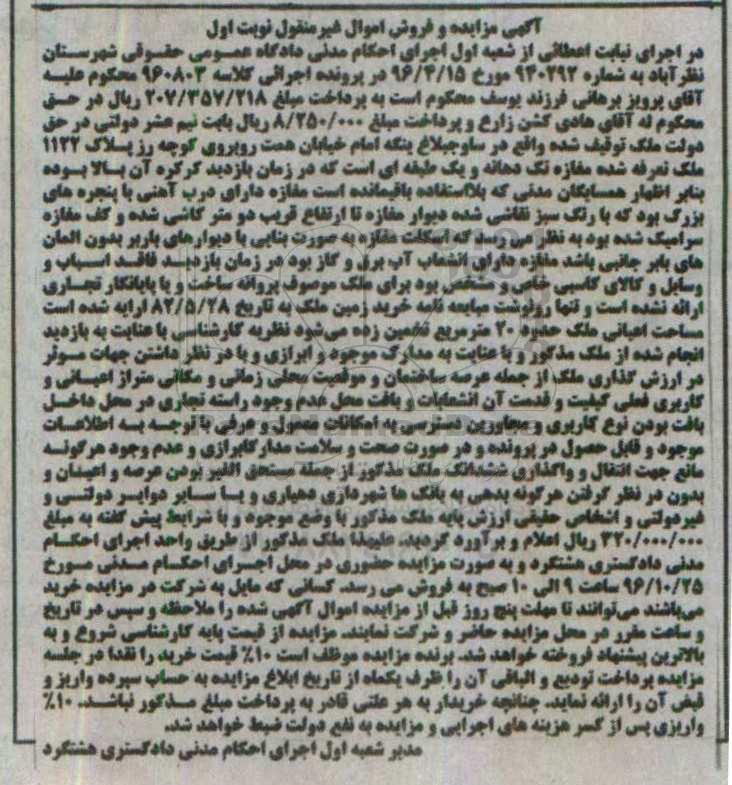 آگهی مزایده و فروش اموال غیرمنقول نوبت اول
در اجرای نیابت اعطائی از شعبه اول اجرای احکام مدنی دادگاه عمومی حقوقی شهرستان
نظرآباد به شماره ۹۴۰۲۹۲ مورخ ۹۶/۴/۱۵ در پرونده اجرائی کلاسه ۹۶۰۸۰۳ محکوم علیه
آقای پرویز برهانی فرزند یوسف محکوم است به پرداخت مبلغ ۲۰۷/۳۵۷/۲۱۸ ریال در حق
محکوم له آقای هادی کشن زارع و پرداخت مبلغ ۸/۲۵۰/۰۰۰ ریال بابت نیم عشر دولتی در حق
دولت ملک توقیف شده واقع در ساوجبلاغ ینگه امام خیابان همت روبروی کوچه رز پلاک ۱۱۲۲
ملک تعرفه شده مغازه تک دهانه و یک طبقه ای است که در زمان بازدید کرکره آن بالا بوده
بنابر اظهار همسایگان مدتی که بلااستفاده باقیمانده است مغازه دارای درب آهنی با پنجره های
بزرگ بود که با رنگ سبز نقاشی شده دیوار مغازه تا ارتفاع قریب دو متر کاشی شده و کف مغازه
سرامیک شده بود به نظر می رسد که اسکلت مغازه به صورت بنایی با دیوارهای باربر بدون المان
های بابر جانبی باشد مغازه دارای انشعاب آب برق و گاز بود در زمان بازدید فاقد اسباب و
وسایل و کالای کاسبی خاص و مشخص بود برای ملک موصوف پروانه ساخت و یا پایانکار تجاری
ارائه نشده است و تنها رونوشت مبایعه نامه خرید زمین ملک به تاریخ ۸۲/۵/۲۸ ارایه شده است
مساحت اعیانی ملک حدود ۲۰ مترمربع تخمین زده می‌شود نظریه کارشناسی با عنایت به بازدید
انجام شده از ملک مذکور و با عنایت به مدارک موجود و ابرازی و با در نظر داشتن جهات موثر
در ارزش گذاری ملک از جمله عرصه ساختمان و موقعیت محلی زمانی و مکانی متراز اعیانی و
کاربری فعلی کیفیت و قدمت آن انشعابات و بافت محل عدم وجود راسته تجاری در محل داخل
بافت بودن نوع کاربری و مجاورین دسترسی به امکانات معمول و عرفی با توجه به اطلاعات
موجود و قابل حصول در پرونده و در صورت صحت و سلامت مدارک ابرازی و عدم وجود هرگونه
مانع جهت انتقال و واگذاری ششدانگ ملک مذکور از جمله مستحق الغیر بودن عرصه و اعیان و
بدون در نظر گرفتن هرگونه بدهی به بانک ها شهرداری دهیاری و یا سایر دوایر دولتی و
غیردولتی و اشخاص حقیقی ارزش پایه ملک مذکور با وضع موجود و با شرایط پیش گفته به مبلغ
۳۲۰/۰۰۰/۰۰۰ ریال اعلام و برآورد گردید. علیهذا ملک مذکور از طریق واحد اجرای احکام
مدنی دادگستری هشتگرد و به صورت مزایده حضوری در محل اجرای احکام مدنی مورخ
۹۶/۱۰/۲۵ ساعت ۹ الی ۱۰ صبح به فروش می رسد. کسانی که مایل به شرکت در مزایده خرید
می‌باشند می‌توانند تا مهلت پنج روز قبل از مزایده اموال آگهی شده را ملاحظه و سپس در تاریخ
و ساعت مقرر در محل مزایده حاضر و شرکت نمایند. مزایده از قیمت پایه کارشناسی شروع و به
بالاترین پیشنهاد فروخته خواهد شد. برنده مزایده موظف است ۱۰٪ قیمت خرید را نقدا در جلسه
مزایده پرداخت تودیع و الباقی آن را ظرف یکماه از تاریخ ابلاغ مزایده به حساب سپرده واریز و
قبض آن را ارائه نماید. چنانچه خریدار به هر علتی قادر به پرداخت مبلغ مذکور نباشد. ۱۰٪
واریزی پس از کسر هزینه های اجرایی و مزایده به نفع دولت ضبط خواهد شد.
مدیر شعبه اول اجرای احکام مدنی دادگستری هشتگرد